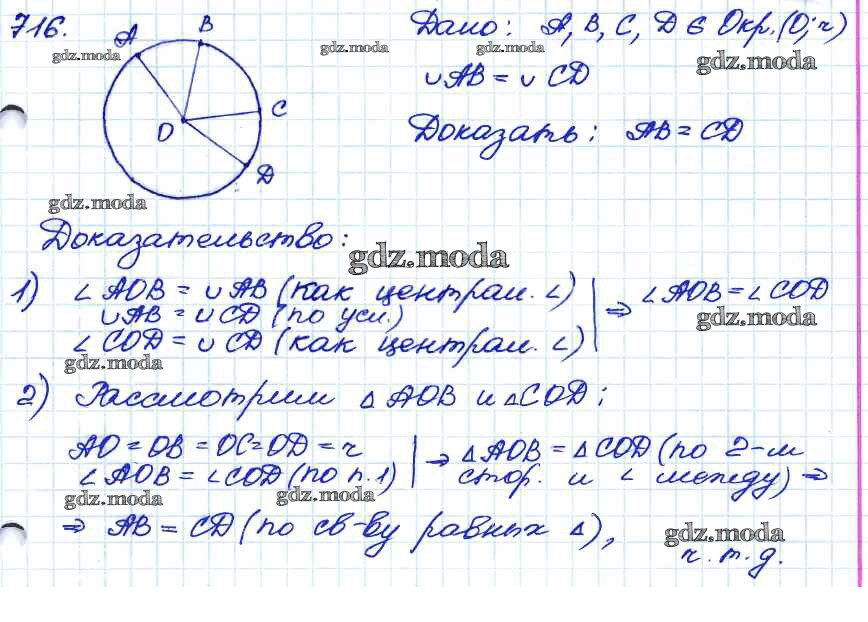 716.
Дано: A, B, C, D ∈ Окр.(O; r)
gdz.moda
gdz.moda
gdz.moda
A
B
∪AB = ∪ CD
C
O
Доказать: AB = CD
D
gdz.moda
Доказательство:
gdz.moda
1) ∠ AOB = ∪ AB (как централ. ∠)
∪ AB = ∪ CD (по усл.)
∠ COD = ∪ CD (как централ. ∠)
⇒ ∠AOB = ∠COD
gdz.moda
gdz.moda
2) Рассмотрим △ AOB и △COD:
AO = OB = OC = OD = r
∠ AOB = ∠COD (по п.1)
⇒ △AOB = △COD (по 2-м
стор. и ∠ между) ⇒
gdz.moda
gdz.moda
⇒ AB = CD (по св-ву равных △),
gdz.moda
ч.т.д.